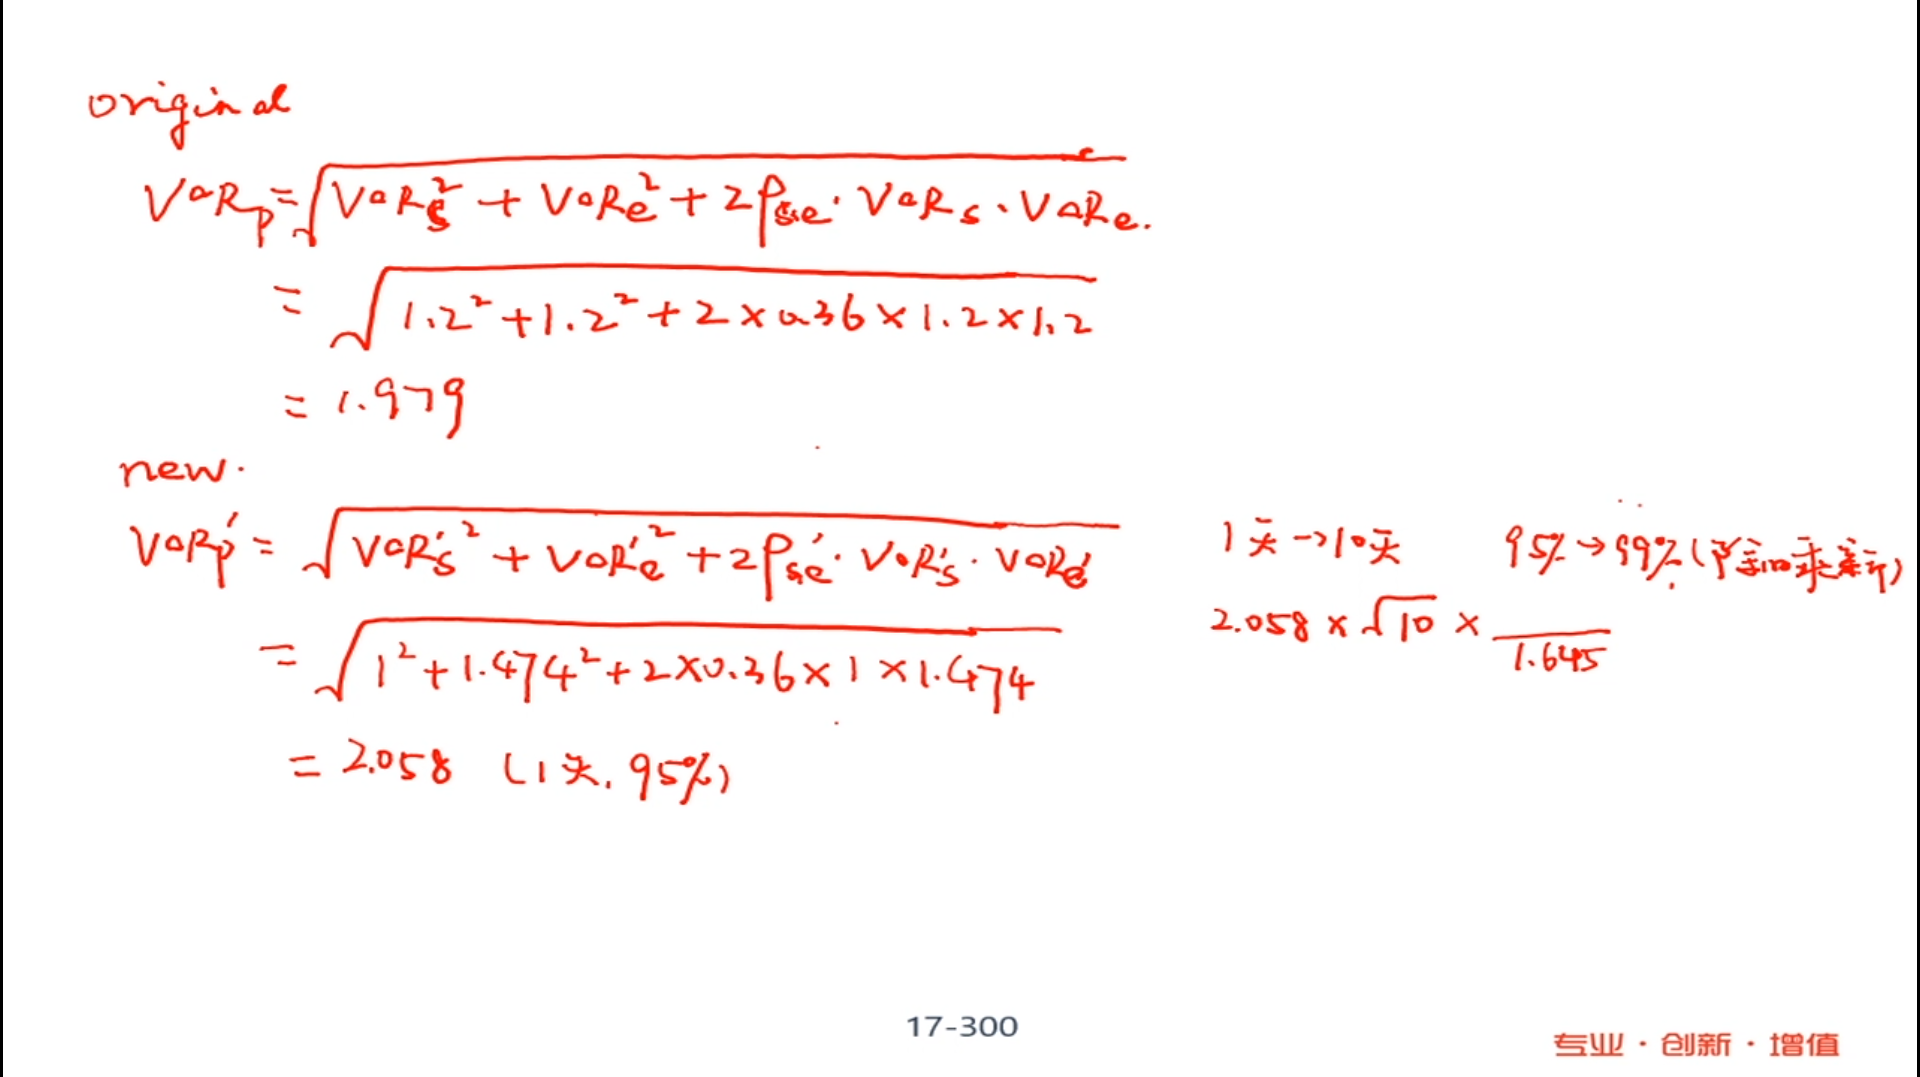 original
VaRp = √(VaRs² + VaRe² + 2ρs,e · VaRs · VaRe.
= √(1.2² + 1.2² + 2 × 0.36 × 1.2 × 1.2
= 1.979
new.
VaRp' = √(VaRs'² + VaRe'² + 2ρs,e' · VaRs' · VaRe'
= √(1² + 1.474² + 2 × 0.36 × 1 × 1.474
= 2.058 (1天, 95%)
1天 → 10天 95% → 99% (
2.058 × √10 × / 1.645
17-300
专业 · 创新 · 增值